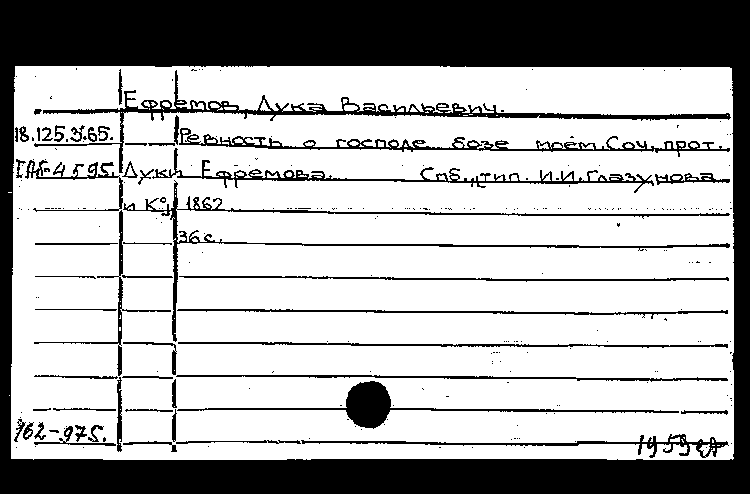 Ефремов, Лука Васильевич.
18.125.3.65. Ревность о господе бозе моем. Соч. прот.
Луки Ефремова. Спб., тип. И.И.Глазунова
и К°, 1862.
36 с.
162-975.